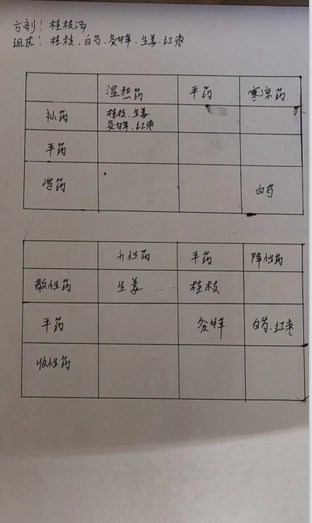 方剂：桂枝汤
组成：桂枝、白芍、炙甘草、生姜、红枣
温热药 平药 寒凉药
补药 桂枝、生姜
炙甘草、红枣
平药
泻药 白芍
升性药 平药 降性药
散性药 生姜 桂枝
平药 炙甘草 白芍、红枣
收性药